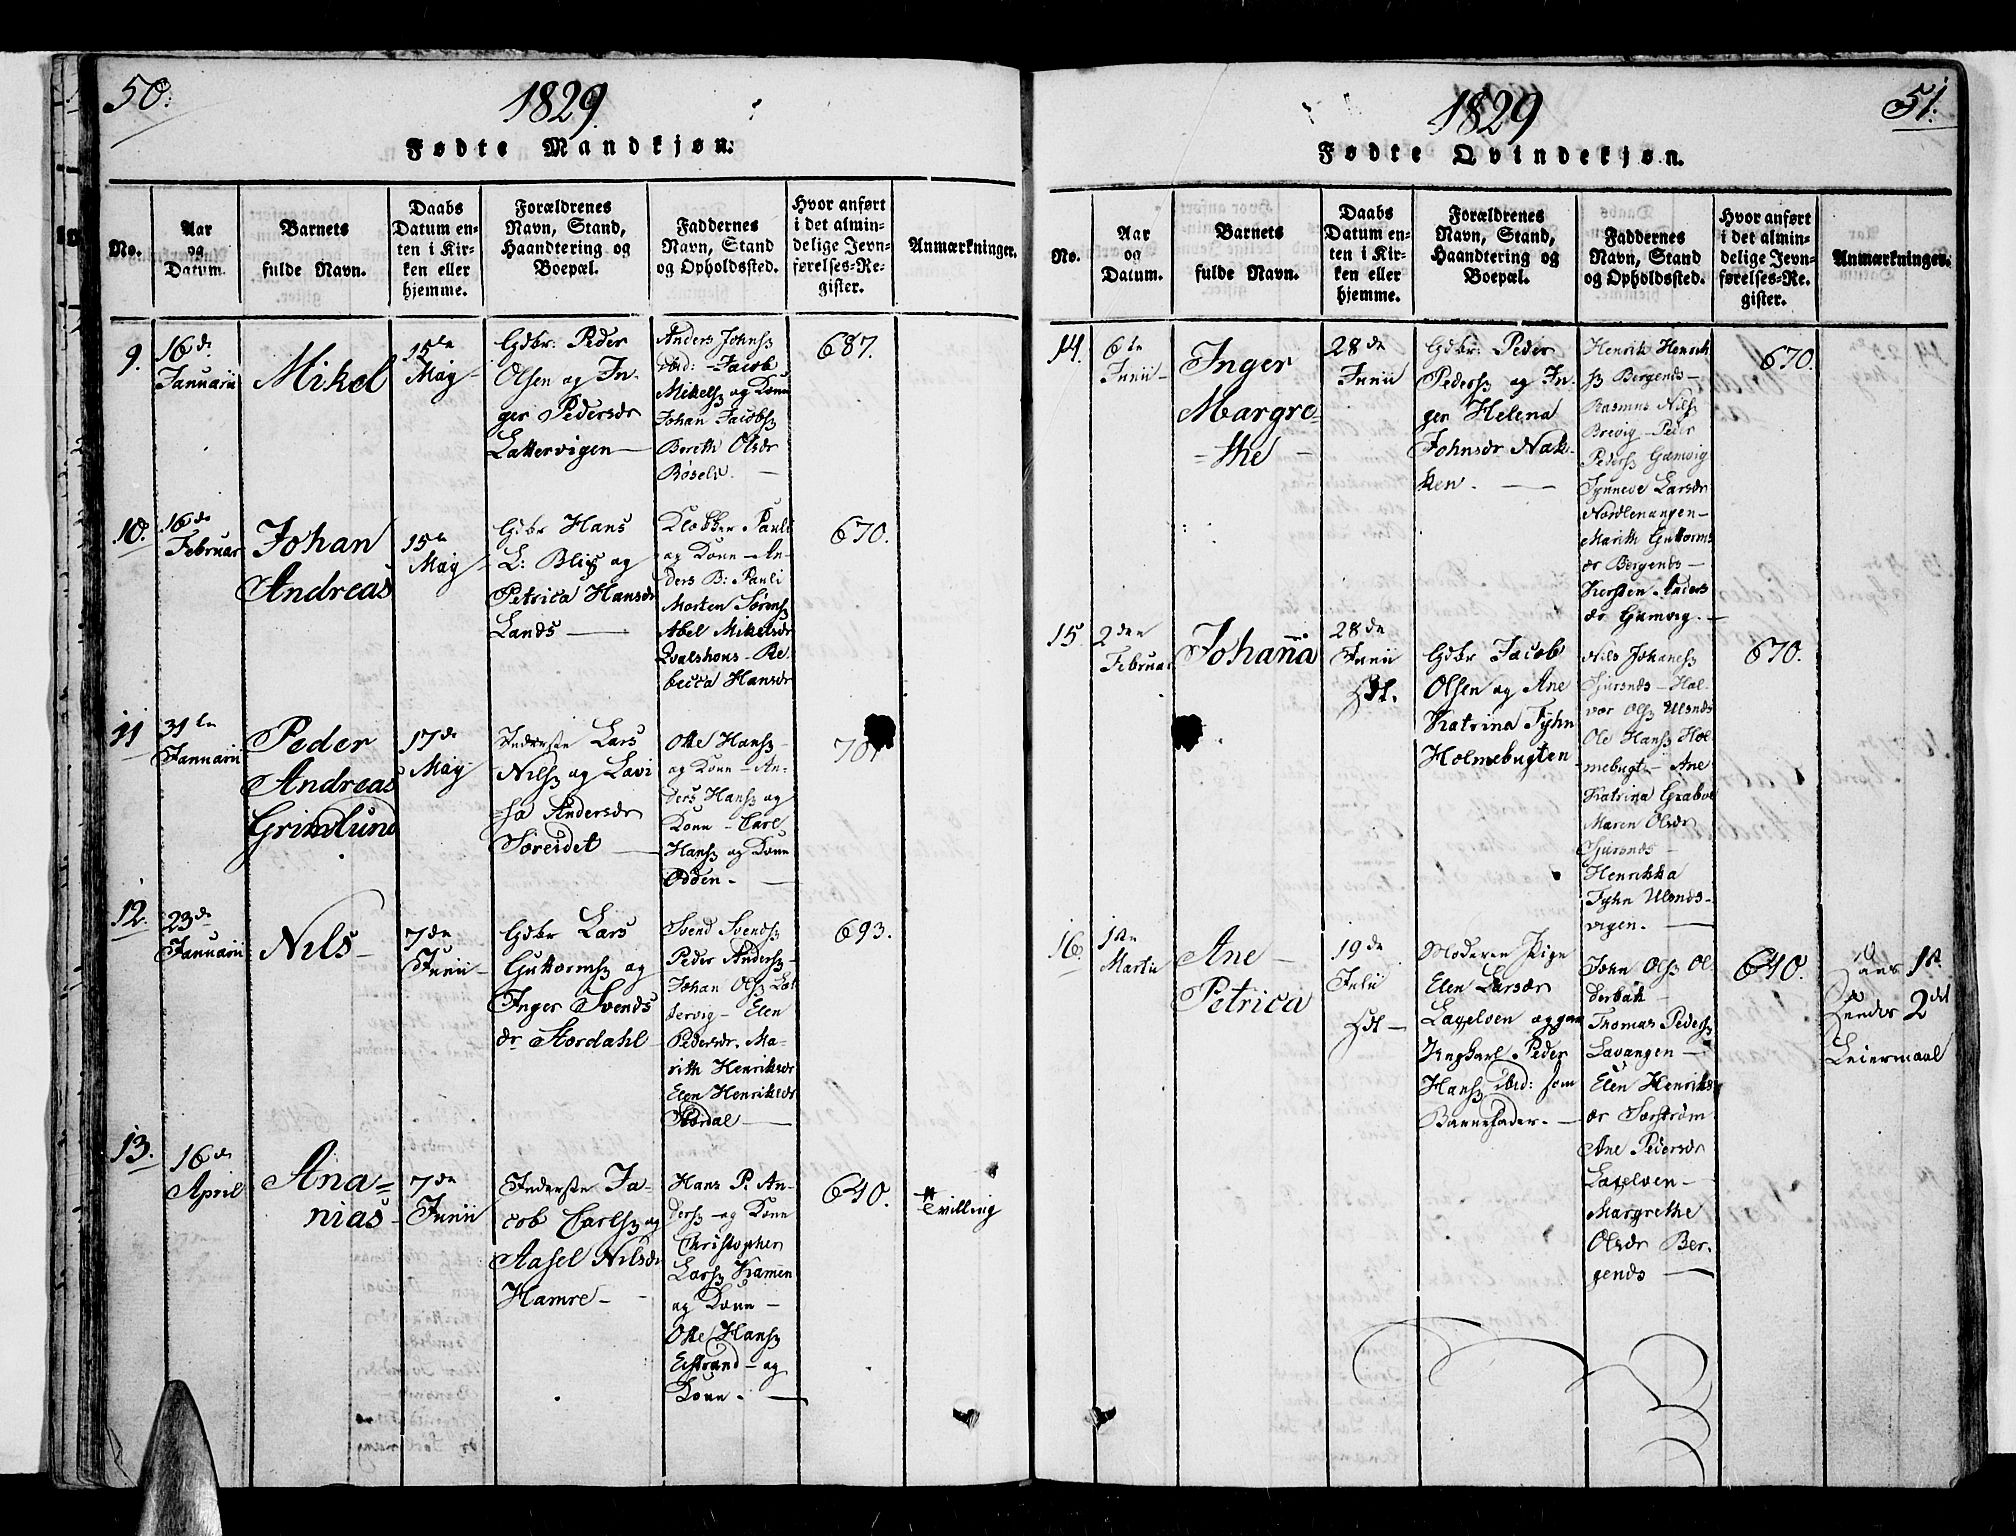 50.
1829.
Fødte Mandkjøn.
No.
Aar
og
Datum.
Barnets
fulde Navn.
Daabs
Datum en-
ten i Kir-
ken eller
hjemme.
Forældrenes
Navn, Stand,
Haandtering og
Boepæl.
Faddernes
Navn, Stand
og Opholdssted.
Hvor anført
i det almin-
delige Jevn-
førelses-Re-
gister.
Anmærkninger.
9.
16de
Januarii
Mikel
15de
May
Gdbr: Peder
Olsen og In-
ger Pedersdr
Lattervigen
Anders Johns
ibid: Jacob
Mikels og Kone
Johan Jacobs
Bereth Olsdr
Røsels.
687.
10.
16de
Februar
Johan
Andreas
15de
May
Gdbr Hans
L: Blix og
Petrica Hansdr
Lands
Klokker Pauli
og Kone - An-
ders B: Pauli
Morten Sørens
Abel Mikelsdr
Qvalshous - Re-
becca Hansdr
670.
11
31te
Januarii
Peder
Andreas
Grimlund
17de
May
Inderste Lars
Nils og Lavi-
sa Andersdr
Søreidet
Otte Hans
og Kone - An-
ders Hans og
Kone - Carl
Hans og Kone
Odden.
701
12.
23de
Januarii
Nils
7de
Junii
Gdbr Lars
Guttorms og
Inger Svends
dr Stordahl
Svend Svends
Peder Anders
Johan Ols Lat
tervig - Elen
Pedersdr. Ma-
rith Henriksdr
Elen Henriksdr
Stordal
693.
13.
16de
April
Ana-
nias
7de
Junii
Inderste Ja-
cob Carls og
Aasel Nilsdr
Hamre
Hans P. An-
ders og Kone
Christopher
Lars Kamen
og Kone
Otte Hans
Eistrand og
Kone.
640.
Tvilling
51.
1829
Fødte Qvindekjøn.
No.
Aar
og
Datum.
Barnets
fulde Navn.
Daabs
Datum en-
ten i Kir-
ken eller
hjemme.
Forældrenes
Navn, Stand,
Haandtering og
Boepæl.
Faddernes
Navn, Stand
og Opholdssted.
Hvor anført
i det almin-
delige Jevn-
førelses-Re-
gister.
Anmærkninger.
14.
6te
Junii
Inger
Margre-
the
28de
Junii
Gdbr: Peder
Peders og In-
ger Helena
Johnsdr Nak-
ken.
Henrik Henrik
s Bergends
Rasmus Nils
Brevig - Peder
Peders Gamvig
Synneve Larsdr
Nordlenangen
Marith Guttorms
dr Bergends
Kersten Anders
dr Gamvig.
670.
15.
2den
Februar
Johanna
28de
Junii
Hdt.
Gdbr Jacob
Olsen og Ane
Katrina Fyhn
Holmebugten
Nils Johanes
Sjursnds - Hal-
vor Ols Ulsnds
Ole Hans Hol
mebugt - Ane
Katrina Grabve
Maren Olsdr
Sjursnds
Henrikka
Fyhn Ulsnds-
vigen.
670.
16.
1ste
Martii
Ane
Petrica
19de
Julii
Hdt
Moderen Pige
Elen Larsdr
Lagelven og
Ungkarl Peder
Hans ibid: som
Barnefader.
John Ols Ol-
derbak
Thomas Peders
Lavangen
Elen Henriks
dr Sørstrøm
Ane Pedersdr
Lagelven
Margrethe
Olsdr Ber-
gends
640.
1st
2det
Leiermaal